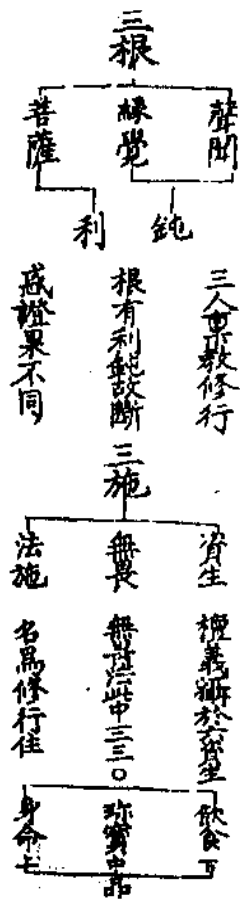 三根
聲聞
緣覺
菩薩
鈍
利
三人稟教修行
根有利鈍故斷
惑證果不同
三施
資生
無畏
法施
檀義攝於六資生
無畏法此中一二三〇
名為修行住
飲食下
珍寶中品
身命上